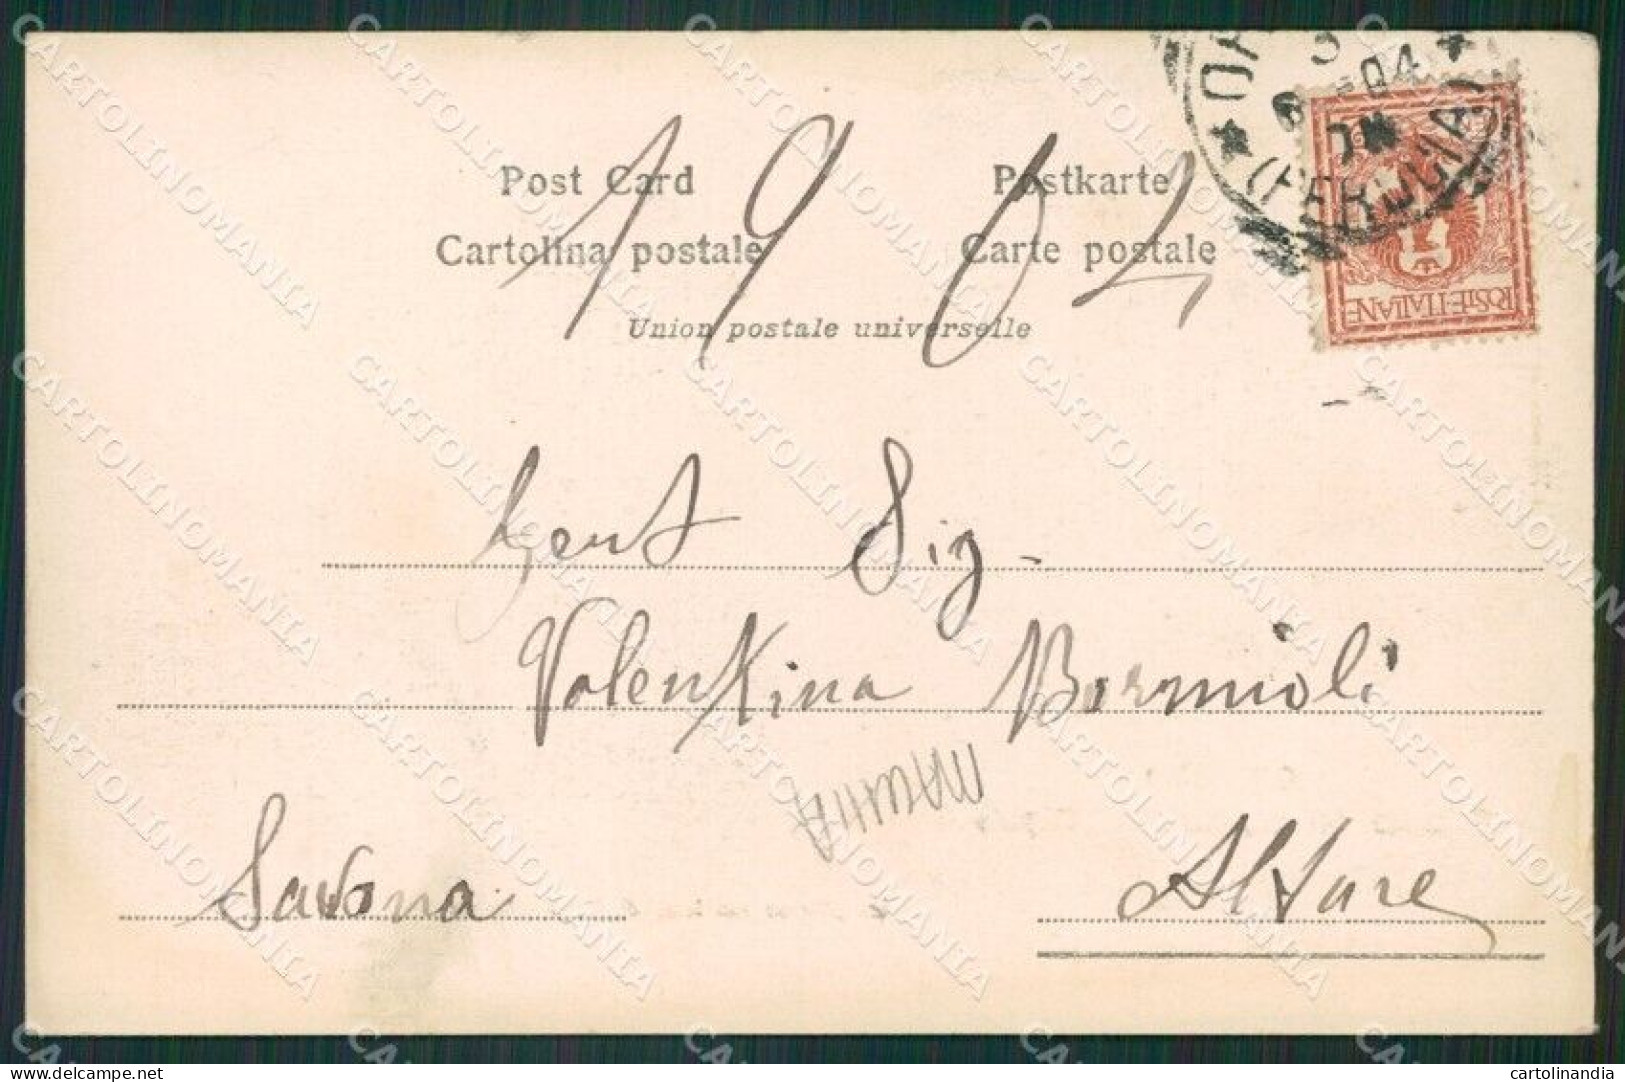 Post Card
Postkarte
Cartolina postale
Carte postale
Union postale universelle
1904
(PERUGIA)
POSTE·ITALIANE
Gent Sig.
Valentina Bormioli
Altare
Savona
CARTOLINOMANIA
cartolinandia